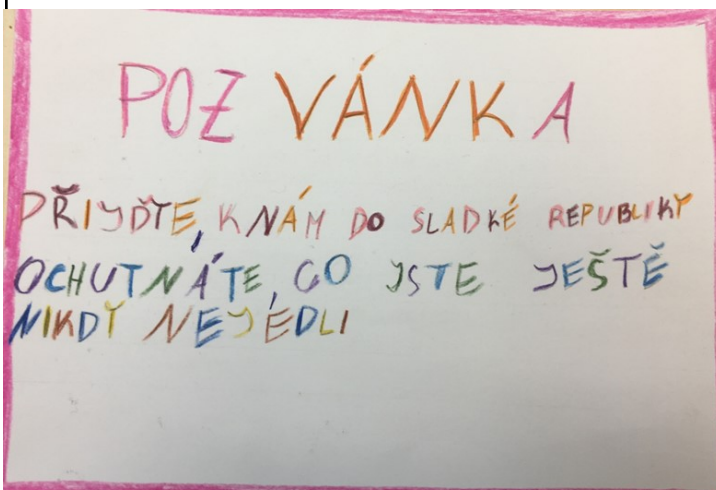 POZVÁNKA
PŘIJĎTE, K NÁM DO SLADKÉ REPUBLIKY
OCHUTNÁTE, CO JSTE JEŠTĚ
NIKDY NEJÉDLI